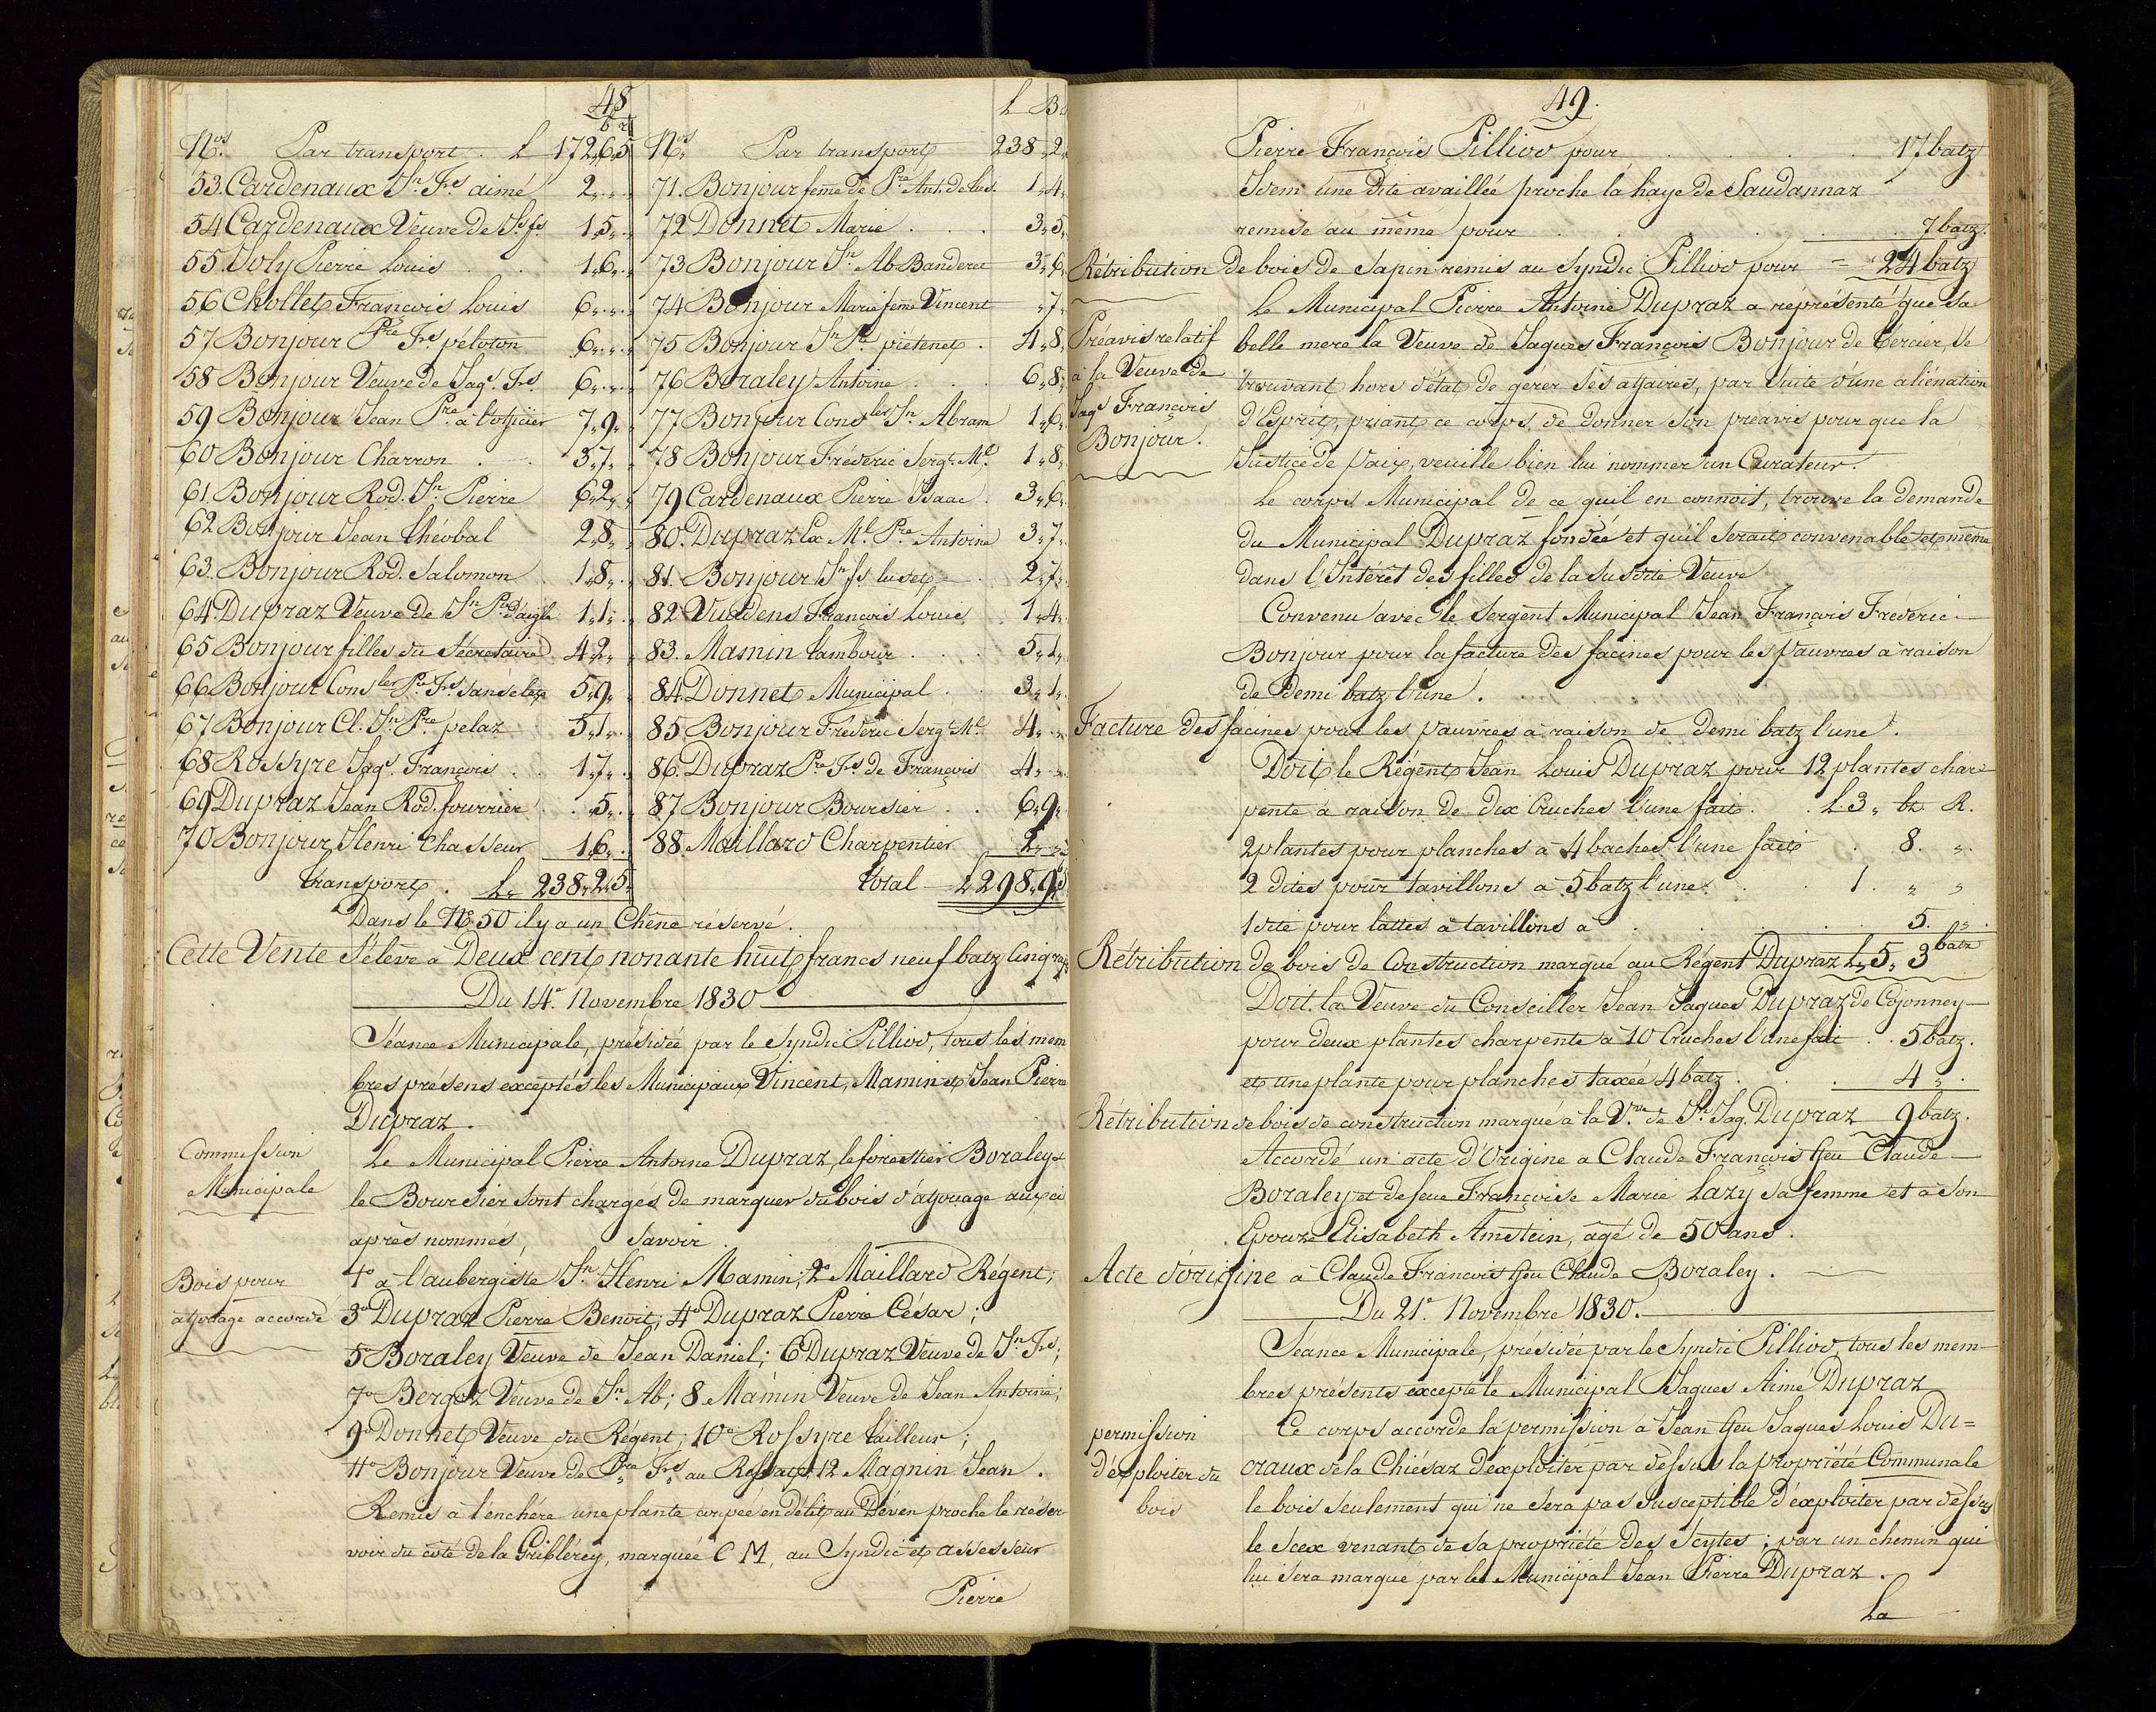 48
b r
Nos. Par transport. L 172,6,5
53. Cardenaux Jn Frs aimé 2,,.,.
54 Cardenaux Veuve de Jn fs. 1,5,.
55. Joly Pierre Louis 1,6,.
56 Chollet François Louis 6,.,.
57 Bonjour Pre Frs péloton 6,.,.
58 Bonjour Veuve de Jaqs. Frs. 6,.,.
59 Bonjour Jean Pre. à l'officier 7,9,
60 Bonjour Charron 3,7,
61. Bonjour Rod. Jn Pierre 6,2,
62 Bonjour Jean théobal 2,8,
63. Bonjour Rod. Salomon 1,8,.
64. Dupraz Veuve de Jn Pre d'aigle 1,1,
65 Bonjour filles du Sécretaire 4,2,
66 Bonjour Consler Pre Frs. 5,9,
67 Bonjour Cl. Jn Pre. pelaz 5,1,.
68 Rossyre Jaqs. François 1,7,.
69 Dupraz Jean Rod. fourrier . 5,.
70 Bonjour Henri Chasseur 1,6,.
transport. L. 238,,2,5,
L B
Nos. Par transport 238,2,
71. Bonjour feme de Pre Ant. 1,4,
72 Donnet Marie 3,5,
73 Bonjour Jn Ab Banderet 3,6,
74 Bonjour Marie feme Vincent ,7,
75 Bonjour Jn Pre piétenet 4,8,
76 Boraley Antoine 6,8,
77 Bonjour Consler Jn. Abram 1,6,
78 Bonjour Fréderic Sergt. Ml. 1,8,
79 Cardenaux Pierre Isaac 3,6,
80. Dupraz Ex Ml. Pre Antoine 3,7,
81. Bonjour Jn fs 2,7,
82 Vuadens François Louis 1,4,
83. Mamin tambour 5,1,
84. Donnet Municipal 3,1,
85. Bonjour Fréderic Sergt. Ml. 4,
86. Dupraz Pre Frs de François 4,
87 Bonjour Boursier 6,9,
88. Maillard Charpentier 2,
total L 298,9,5
Dans le No. 50 il y a un Chêne réservé.
Cette Vente s'élève à Deux cent nonante huit francs neuf batz cinq raps
Du 14e. Novembre 1830
Séance Municipale, présidée par le Syndic Pilliod, tous les mem
bres présens exceptés les Municipaux Vincent, Mamin et Jean Pierre
Dupraz.
Commission
Municipale
Le Municipal Pierre Antoine Dupraz, le forestier Boraley &
le Boursier sont chargés de marquer du bois d'affouage aux ci
après nommés, Savoir.
Bois pour
affouage accordé
1o à l'aubergiste Jn. Henri Mamin; 2o Maillard Régent;
3o Dupraz Pierre Benoit; 4o Dupraz Pierre César;
5o Boraley Veuve de Jean Daniel; 6 Dupraz Veuve de Jn. Frs;
7o Bergoz Veuve de Jn. Ab; 8 Mamin Veuve de Jean Antoine;
9o Donnet Veuve du Régent; 10o Rossyre tailleur;
11o Bonjour Veuve de Pre Frs au 12 Magnin Jean.
Remis à l'enchére une plante coupée en délit au Déven proche le réser
voir du coté de la Griblérey, marquée C M, au Syndic et assesseur
Pierre
49.
Pierre François Pilliod pour 17 batz
Item une dite availlée proche la haye de Saudannaz
remise au même pour 7 batz.
Rétribution de bois de sapin remis au Syndic Pilliod pour = 24 batz
Le Municipal Pierre Antoine Dupraz a réprésenté que sa
Préavis relatif
à la Veuve de
Jaqs François
Bonjour.
belle mere la Veuve de Jaques François Bonjour de Cercier, se
trouvant hors d'état de gérer ses affaires, par suite d'une aliénation
d'Esprit, priant ce corps de donner son préavis pour que la
Justice de Paix, veuille bien lui nommer un Curateur.
Le corps Municipal de ce quil en connoit, trouve la demande
du Municipal Dupraz fondée et quil serait convenable et même
dans l'Intérêt des filles de la susdite Veuve
Convenu avec le Sergent Municipal Jean François Fréderic
Bonjour pour la facture des facines pour les Pauvres à raison
de demi batz l'une.
Facture des facines pour les pauvres à raison de demi batz l'une.
Doit le Régent Jean Louis Dupraz pour 12 plantes char
pente à raison de dix Cruches l'une fait L. 3,, bz R.
2 plantes pour planches à 4 baches l'une fait 8. ,,.
2 dites pour tavillons à 5 batz l'une. 1. ,, ,,
1 dite pour lattes à tavillons à 5. ,,.
Rétribution de bois de Construction marqué au Régent Dupraz L,, 5,, 3 batz
Doit la Veuve du Conseiller Jean Jaques Dupraz de Cojonney
pour deux plantes charpente à 10 Cruches l'une fait 5 batz.
et une plante pour planches taxée 4 batz 4 ,,.
Rétribution de bois de construction marqué à la Ve. de Jn. Jaq. Dupraz 9 batz.
Accordé un acte d'Origine a Claude François feu Claude
Boraley et de feue Françoise Marie Lazy sa femme et à son
Epouze Elisabeth Amstein, agé de 50 ans.
Acte d'origine à Claude François feu Claude Boraley.
Du 21e. Novembre 1830.
Séance Municipale, présidée par le Syndic Pilliod, tous les mem-
bres présents excepté le Municipal Jaques Aimé Dupraz
permission
d'exploiter du
bois
Ce corps accorde la permission à Jean feu Jaques Louis Du=
craux de la Chiésaz d'exploiter par dessus la propriété Communale
le bois seulement qui ne sera pas susceptible d'exploiter par dessus
le Scex venant de sa propriété des Scytes; par un chemin qui
lui sera marqué par le Municipal Jean Pierre Dupraz.
La